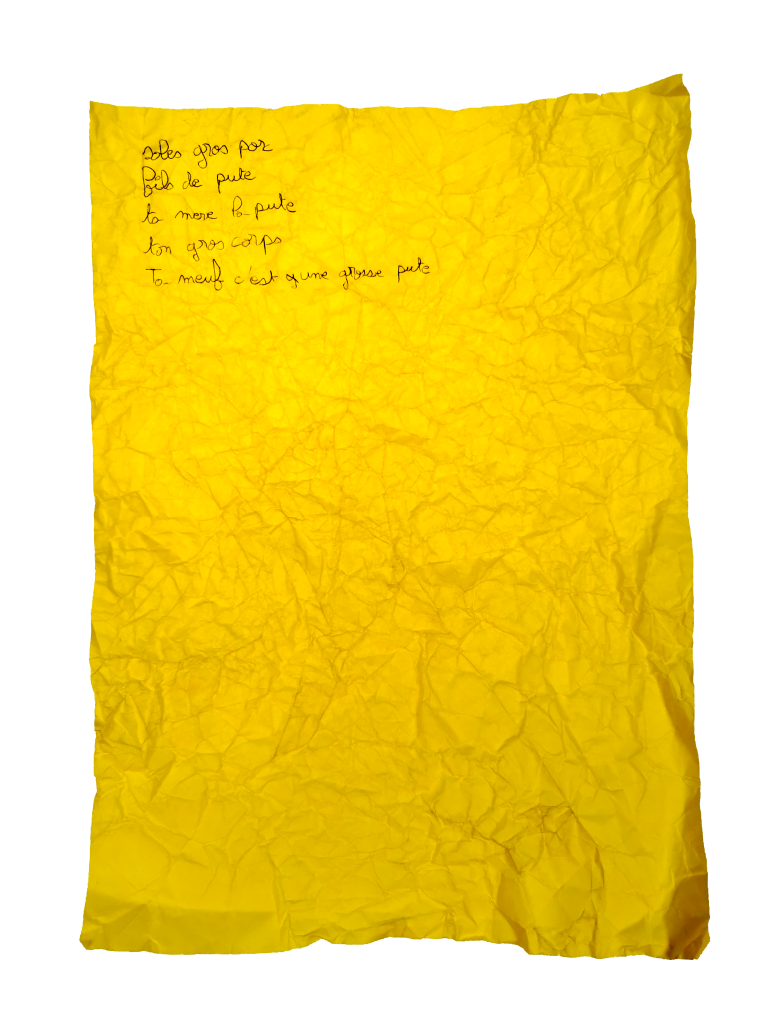 sales gros por
fils de pute
ta mere la pute
ton gros corps
Ta meuf c'est q'une grosse pute